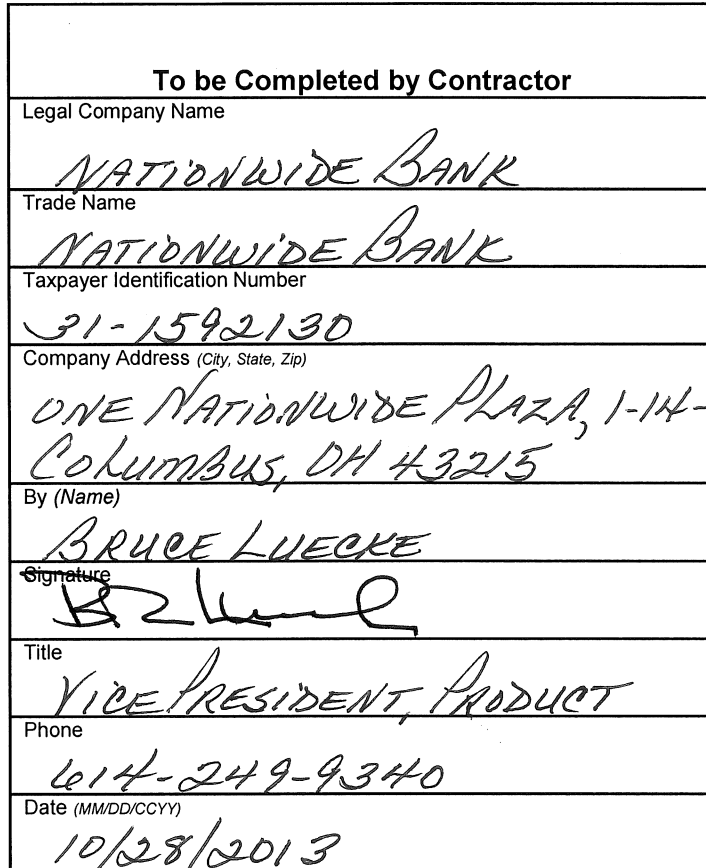 To be Completed by Contractor
Legal Company Name
NATIONWIDE BANK
Trade Name
NATIONWIDE BANK
Taxpayer Identification Number
31-1592130
Company Address (City, State, Zip)
ONE NATIONWIDE PLAZA, 1-14-
COLUMBUS, OH 43215
By (Name)
BRUCE LUECKE
Signature
Title
VICE PRESIDENT, PRODUCT
Phone
614-249-9340
Date (MM/DD/CCYY)
10/28/2013